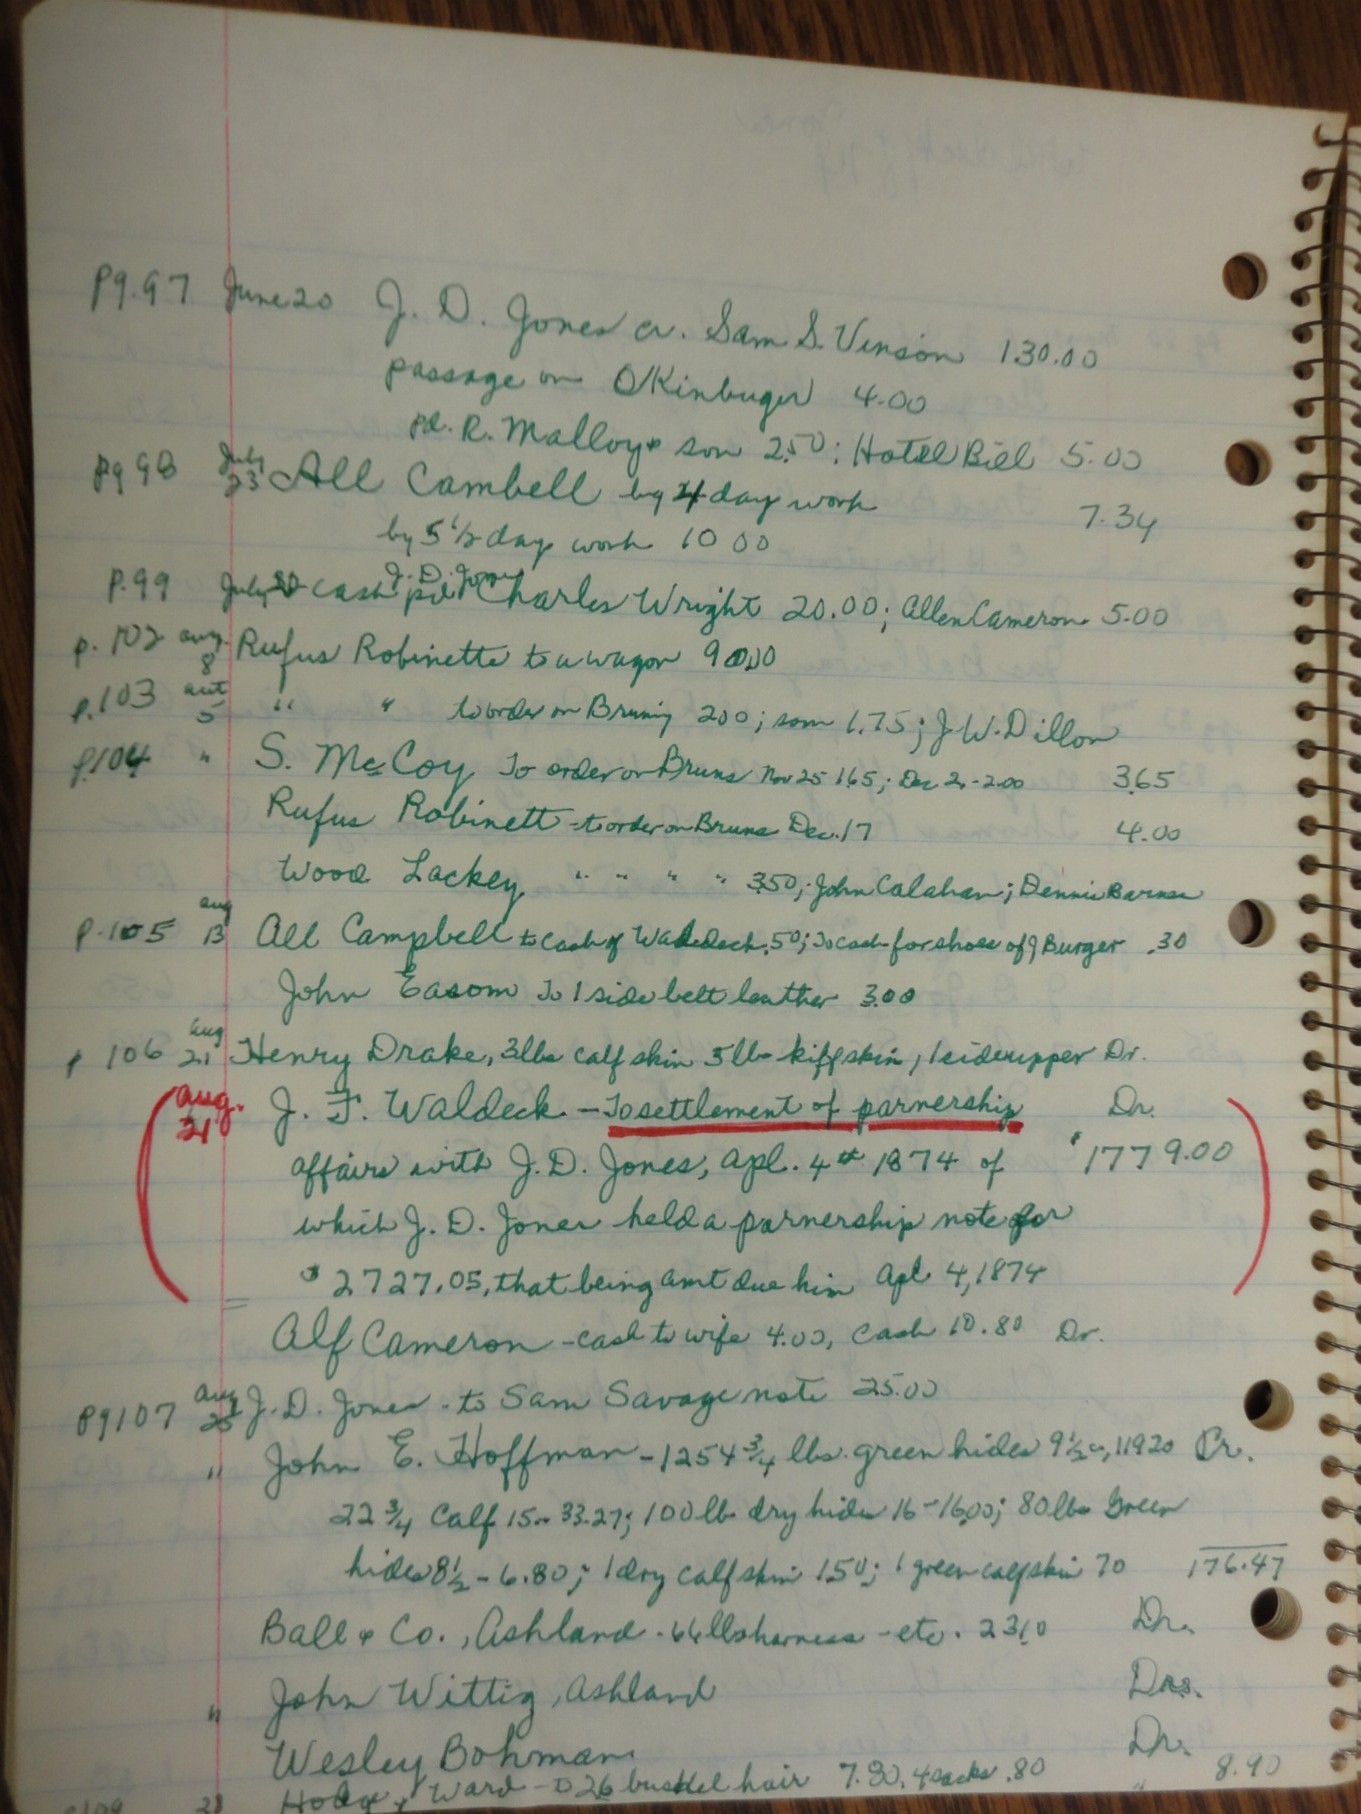 Pg. 97 June 20 J. D. Jones cr. Sam S. Vinson 130.00
passage on O'Kinburger 4.00
pd. R. Malloy & son 2.50; Hotel Bill 5.00
Pg 98 July 23 All Cambell by 4 day work 7.34
by 5 1/2 days work 10 00
P. 99 July cash pd J. D. Jones Charles Wright 20.00; Allen Cameron 5.00
p. 102 aug. 8 Rufus Robinette to a wagon 90.00
p. 103 5 " " to order on Bruning 200; som 1.75; J W. Dillon
p. 104 " S. McCoy To order on Bruns Nov 25 1.65; Dec 2, - 2.00 3.65
Rufus Robinett - to order on Bruns Dec. 17 4.00
Wood Lackey " " " " 3.50; John Calahan; Dennis Barnes
p. 105 aug 13 All Campbell to cash of Waldeck .50; To cash for shoes of J Burger .30
John Easom To 1 side belt leather 3.00
p 106 aug 21 Henry Drake, 3lbs calf skin 5 lbs kiff skin, 1 side upper Dr.
aug. 21 J. F. Waldeck - To settlement of parnership Dr.
affairs with J. D. Jones, Apl. 4th 1874 of $1779.00
which J. D. Jones held a parnership note for
$2727.05, that being amt due him Apl 4, 1874
Alf Cameron - cash to wife 4.00, Cash 10.80 Dr.
Pg 107 Aug 25 J. D. Jones - to Sam Savage note 25.00
" John E. Hoffman - 1254 3/4 lbs. green hides 9 1/2 c, 119 20 Cr.
22 3/4 Calf 15 - 33.27; 100 lb dry hides 16 - 16.00; 80 lbs Green
hides 8 1/2 - 6.80; 1 dry calf skin 1.50; 1 green calf skin 70 176.47
Ball & Co., Ashland - 66 lbs harness - etc. 23.10 Dr.
" John Wittig, Ashland Drs.
Wesley Bohman Dr.
31 Hodge & Ward - to 26 bushel hair 7.80, 4 sacks .80 " 8.90